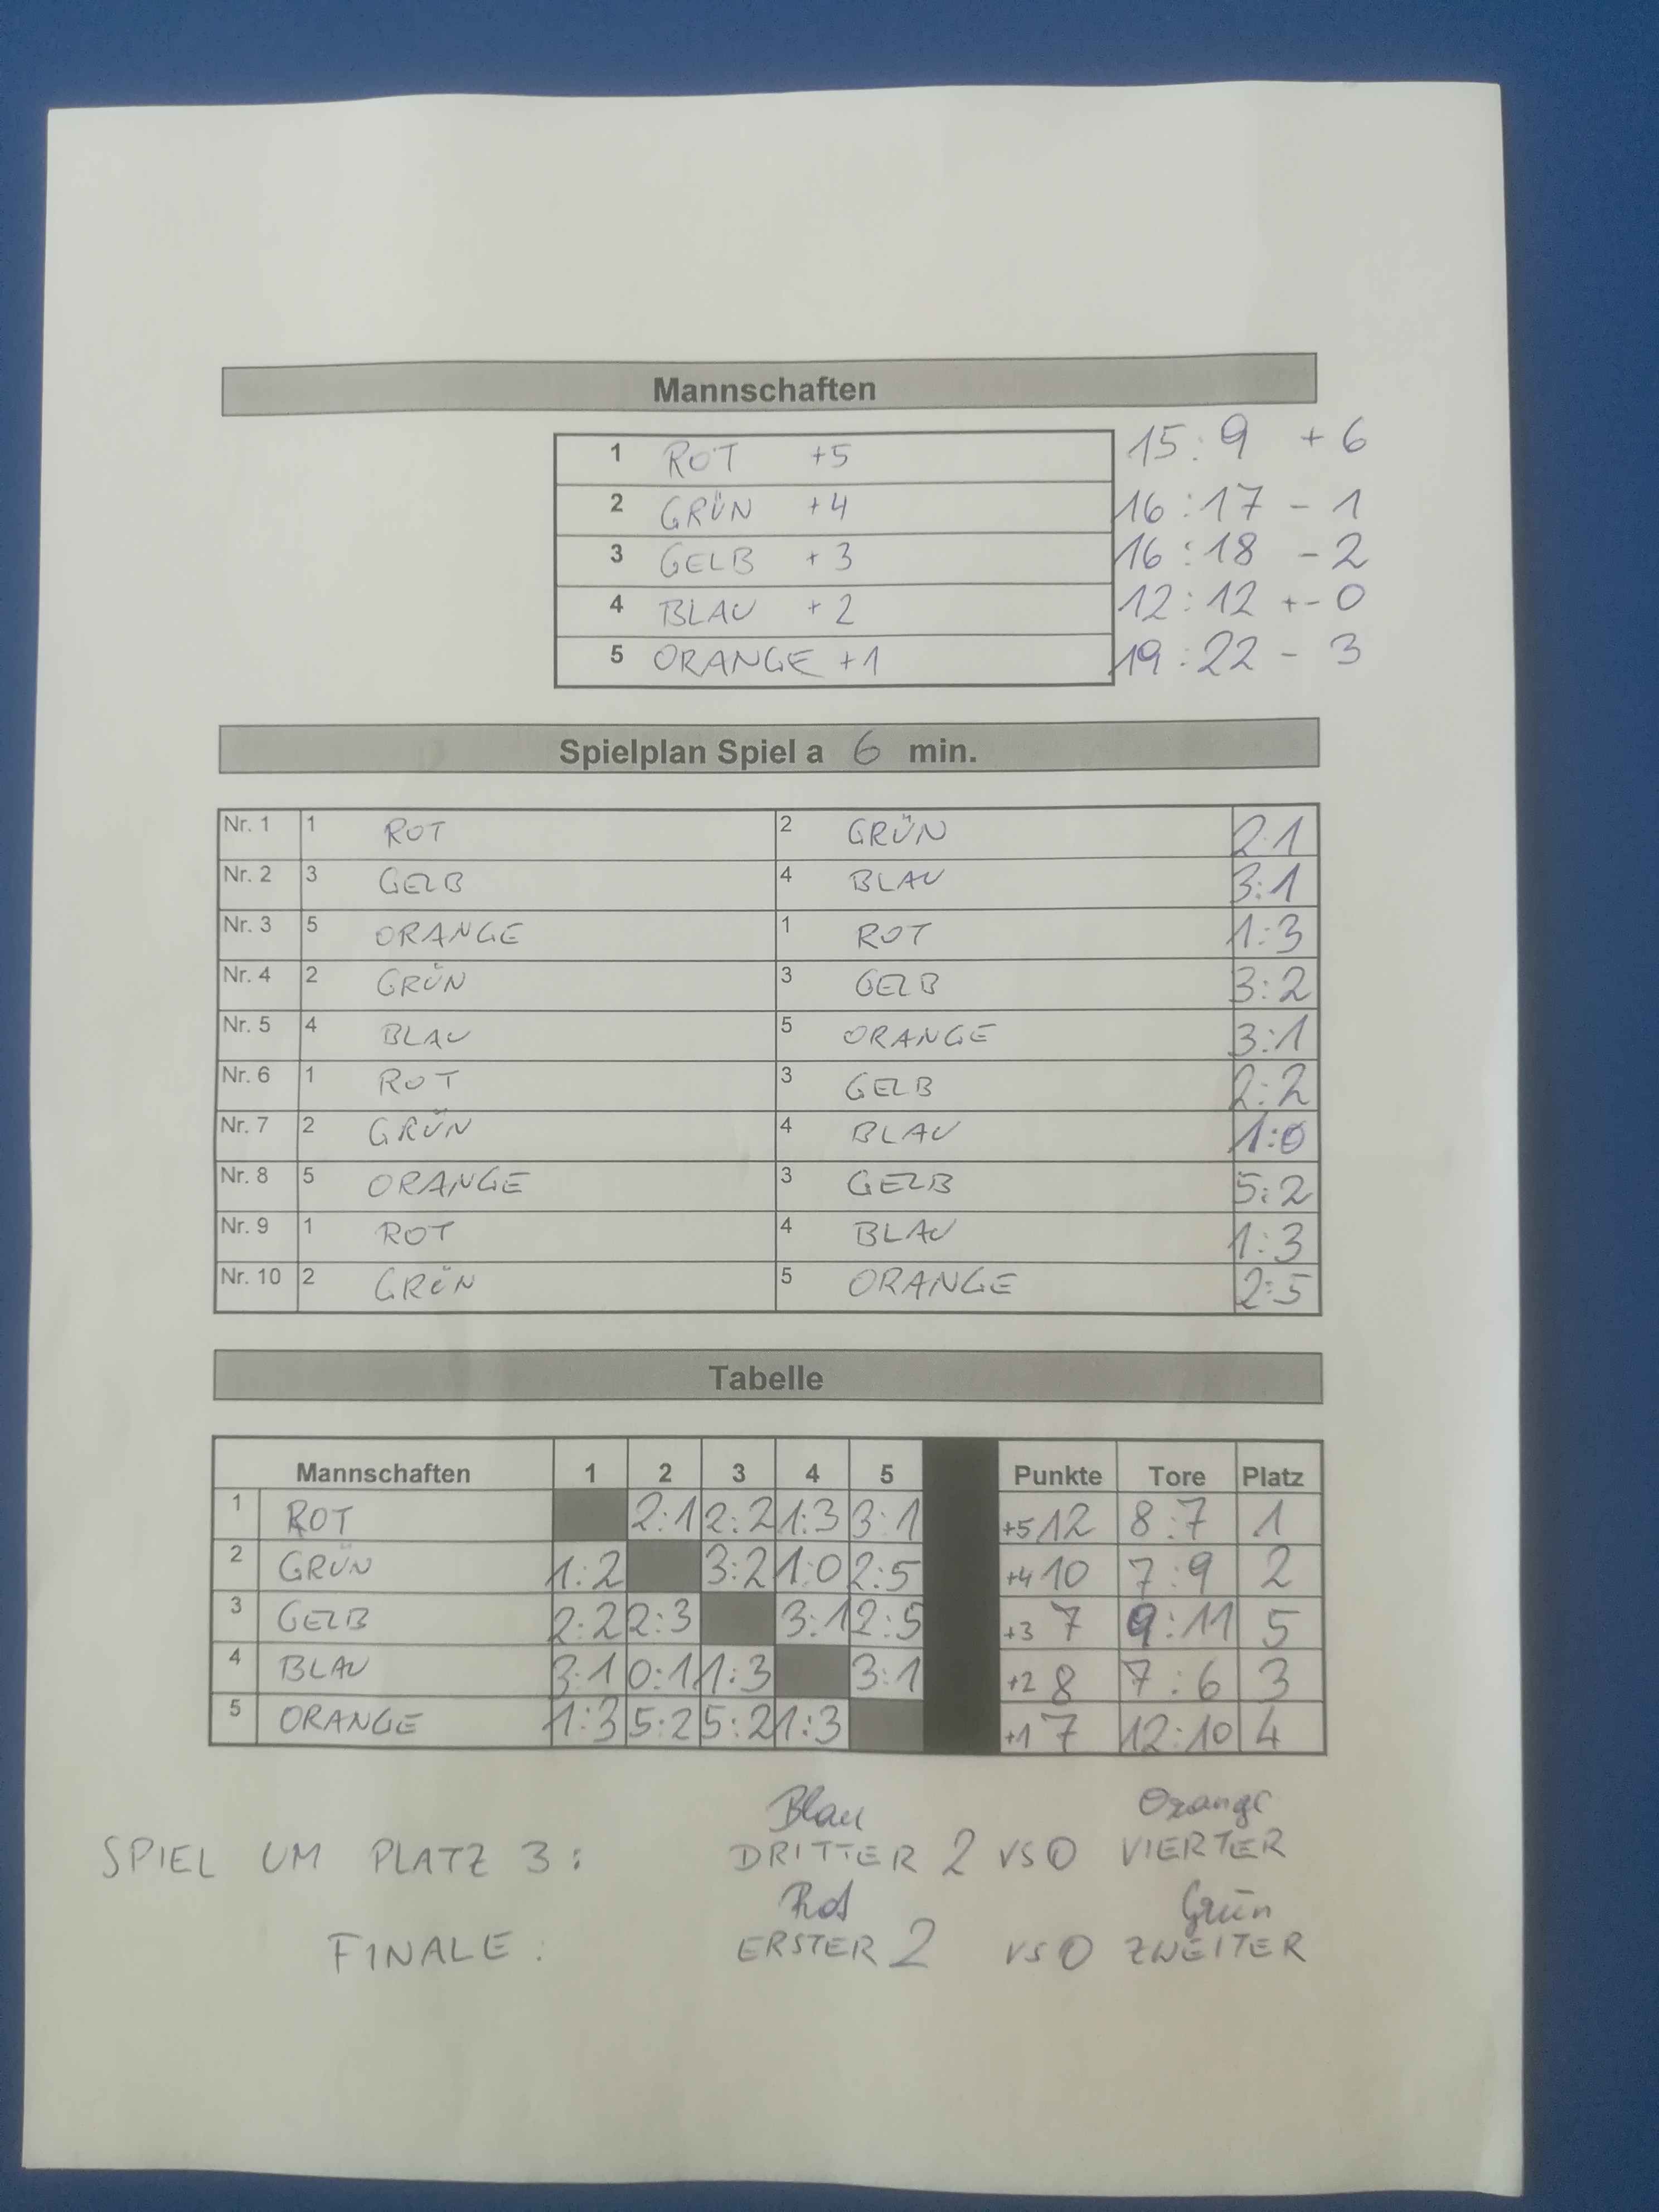 Mannschaften
1 ROT +5 15:9 +6
2 GRÜN +4 16:17 -1
3 GELB +3 16:18 -2
4 BLAU +2 12:12 +-0
5 ORANGE +1 19:22 -3
Spielplan Spiel a 6 min.
Nr. 1 1 ROT 2 GRÜN 2:1
Nr. 2 3 GELB 4 BLAU 3:1
Nr. 3 5 ORANGE 1 ROT 1:3
Nr. 4 2 GRÜN 3 GELB 3:2
Nr. 5 4 BLAU 5 ORANGE 3:1
Nr. 6 1 ROT 3 GELB 2:2
Nr. 7 2 GRÜN 4 BLAU 1:0
Nr. 8 5 ORANGE 3 GELB 5:2
Nr. 9 1 ROT 4 BLAU 1:3
Nr. 10 2 GRÜN 5 ORANGE 2:5
Tabelle
Mannschaften 1 2 3 4 5 Punkte Tore Platz
1 ROT 2:1 2:2 1:3 3:1 +5 12 8:7 1
2 GRÜN 1:2 3:2 1:0 2:5 +4 10 7:9 2
3 GELB 2:2 2:3 3:1 2:5 +3 7 9:11 5
4 BLAU 3:1 0:1 1:3 3:1 +2 8 7:6 3
5 ORANGE 1:3 5:2 5:2 1:3 +1 7 12:10 4
Blau Orange
SPIEL UM PLATZ 3: DRITTER 2 VS 0 VIERTER
Rot Grün
FINALE: ERSTER 2 VS 0 ZWEITER